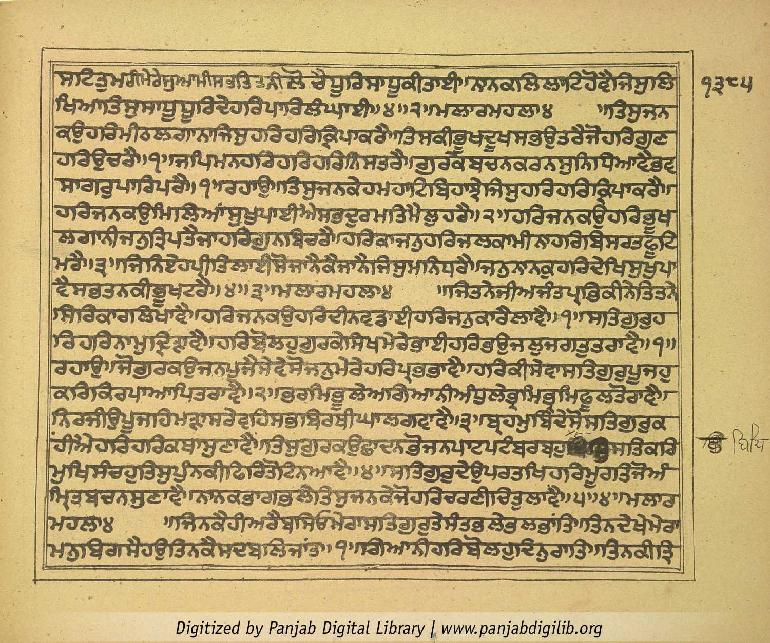 ਸਾਟਿਤੁਮਰੀਮੇਰੇਸੁਆਮੀਸਭਤਿਤਨੀਲੋਚੈਧੂਰਿਸਾਧੂਕੀਤਾਈ॥ਨਾਨਕਲਿਲਾਟਿਹੋਵੈਜਿਸੁਲਿ
ਖਿਆਤਿਸੁਸਾਧੂਧੂਰਿਦੇਹਰਿਪਾਰਿਲੰਘਾਈ॥੪॥੨॥ਮਲਾਰਮਹਲਾ੪ ॥ਤਿਸੁਜਨ
ਕਉਹਰਿਮੀਠਲਗਾਨਾਜਿਸੁਹਰਿਹਰਿਕ੍ਰਿਪਾਕਰੈ॥ਤਿਸਕੀਭੂਖਦੂਖਸਭਉਤਰੈਜੋਹਰਿਗੁਣ
ਹਰਿਉਚਰੈ॥੧॥ਜਪਿਮਨਹਰਿਹਰਿਹਰਿਨਿਸਤਰੈ॥ਗੁਰਕੇਬਚਨਕਰਨਸੁਨਿਧਿਆਵੈਭਵ
ਸਾਗਰੁਪਾਰਿਪਰੈ॥੧॥ਰਹਾਉ॥ਤਿਸੁਜਨਕੇਹਮਹਾਟਿਬਿਹਾਝੇਜਿਸੁਹਰਿਹਰਿਕ੍ਰਿਪਾਕਰੈ॥
ਹਰਿਜਨਕਉਮਿਲਿਆਂਸੁਖੁਪਾਈਐਸਭਦੁਰਮਤਿਮੈਲੁਹਰੈ॥੨॥ਹਰਿਜਨਕਉਹਰਿਭੂਖ
ਲਗਾਨੀਜਨੁਤ੍ਰਿਪਤੈਜਾਹਰਿਗੁਨਬਿਚਰੈ॥ਹਰਿਕਾਜਨੁਹਰਿਜਲਕਾਮੀਨਾਹਰਿਬਿਸਰਤਫੂਟਿ
ਮਰੈ॥੩॥ਜਿਨਿਏਹਪ੍ਰੀਤਿਲਾਈਸੋਜਾਨੈਕੈਜਾਨੈਜਿਸੁਮਨਿਧਰੈ॥ਜਨੁਨਾਨਕੁਹਰਿਦੇਖਿਸੁਖੁਪਾ
ਵੈਸਭਤਨਕੀਭੂਖਟਰੈ॥੪॥੩॥ਮਲਾਰਮਹਲਾ੪ ॥ਜਿਤਨੇਜੀਅਜੰਤਪ੍ਰਭਿਕੀਨੇਤਿਤਨੇ
ਸਿਰਿਕਾਰਲਿਖਾਵੈ॥ਹਰਿਜਨਕਉਹਰਿਦੀਨਵਡਾਈਹਰਿਜਨੁਕਾਰੈਲਾਵੈ॥੧॥ਸਤਿਗੁਰੁਹ
ਰਿਹਰਿਨਾਮੁਦ੍ਰਿੜਾਵੈ॥ਹਰਿਬੋਲਹੁਗੁਰਕੇਸਿਖਮੇਰੇਭਾਈਹਰਿਭਉਜਲੁਜਗਤੁਤਰਾਵੈ॥੧॥
ਰਹਾਉ॥ਜੋਗੁਰਕਉਜਨੁਪੂਜੇਸੇਵੇਸੋਜਨੁਮੇਰੇਹਰਿਪ੍ਰਭਭਾਵੈ॥ਹਰਿਕੀਸੇਵਾਸਤਿਗੁਰੁਪੂਜਹੁ
ਕਰਿਕਿਰਪਾਆਪਿਤਰਾਵੈ॥੨॥ਭਰਮਿਭੂਲੇਅਗਿਆਨੀਅੰਧੁਲੇਭ੍ਰਮਿਭ੍ਰਮਿਫੂਲਤੋਰਾਵੈ॥
ਨਿਰਜੀਉਪੂਜਹਿਮੜਾਸਰੇਵਹਿਸਭਬਿਰਥੀਘਾਲਗਵਾਵੈ॥੩॥ਬ੍ਰਹਮੁਬਿੰਦੇਸੋਸਤਿਗੁਰੁਕ
ਹੀਐਹਰਿਹਰਿਕਥਾਸੁਣਾਵੈ॥ਤਿਸੁਗੁਰਕਉਛਾਦਨਭੋਜਨਪਾਟਪਟੰਬਰਬਹੁ ਸਤਿਕਰਿ
ਮੁਖਿਸੰਚਹੁਤਿਸੁਪੁੰਨਕੀਫਿਰਿਤੋਟਿਨਆਵੈ॥੪॥ਸਤਿਗੁਰੁਦੇਉਪਰਤਖਿਹਰਿਮੂਰਤਿਜੋਅੰ
ਮ੍ਰਿਤਬਚਨਸੁਣਾਵੈ॥ਨਾਨਕਭਾਗਭਲੇਤਿਸੁਜਨਕੇਜੋਹਰਿਚਰਣੀਚਿਤੁਲਾਵੈ॥੫॥੪॥ਮਲਾਰ
ਮਹਲਾ੪ ॥ਜਿਨਕੈਹੀਅਰੈਬਸਿਓਮੇਰਾਸਤਿਗੁਰੁਤੇਸੰਤਭਲੇਭਲਭਾਂਤਿ॥ਤਿਨਦੇਖੇਮੇਰਾ
ਮਨੁਬਿਗਸੈਹਉਤਿਨਕੈਸਦਬਲਿਜਾਂਤ॥੧॥ਗਿਆਨੀਹਰਿਬੋਲਹੁਦਿਨੁਰਾਤਿ॥ਤਿਨਕੀਤ੍ਰਿ
੧੩੮੫
ਬਿਧਿ
Digitized by Panjab Digital Library | www.panjabdigilib.org